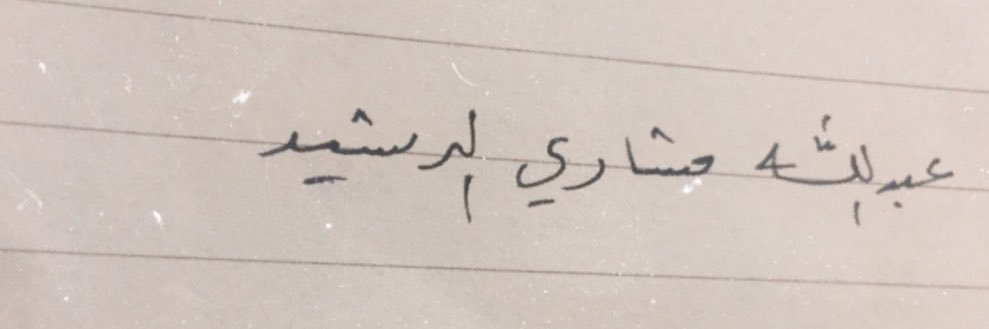 عبدالله مشاري الرشيد